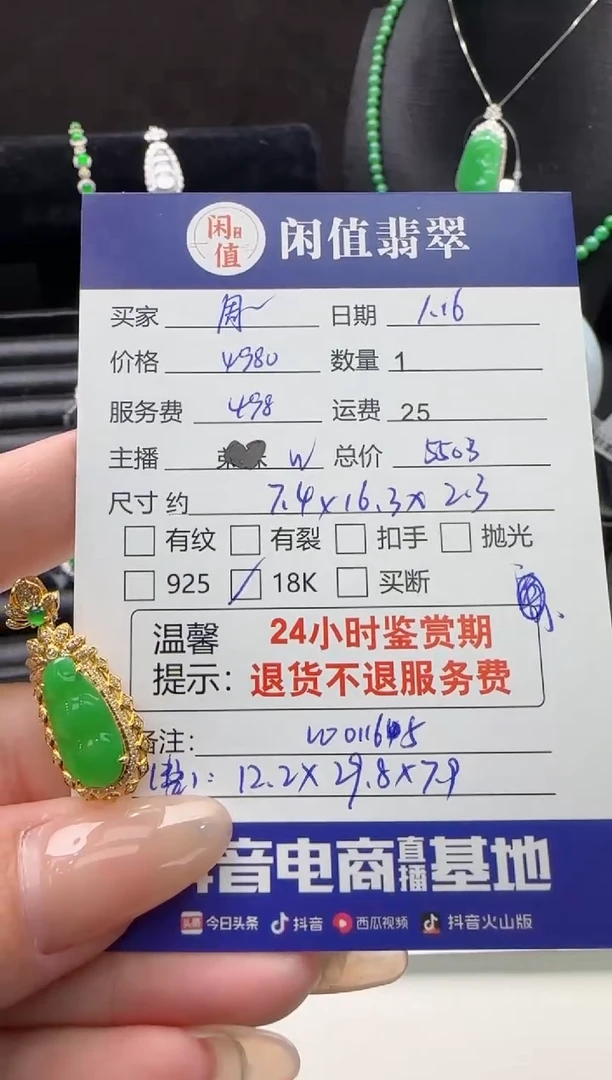 闲值 闲值翡翠
买家 周 日期 1.16
价格 4980 数量 1
服务费 498 运费 25
主播 W 总价 5503
尺寸 约 7.4x16.3x2.3
有纹 有裂 扣手 抛光
925 18K 买断
温馨提示： 24小时鉴赏期
退货不退服务费
备注： W0116 5
(整)： 12.2x29.8x7.9
音电商直播基地
头条 今日头条 抖音 西瓜视频 抖音火山版